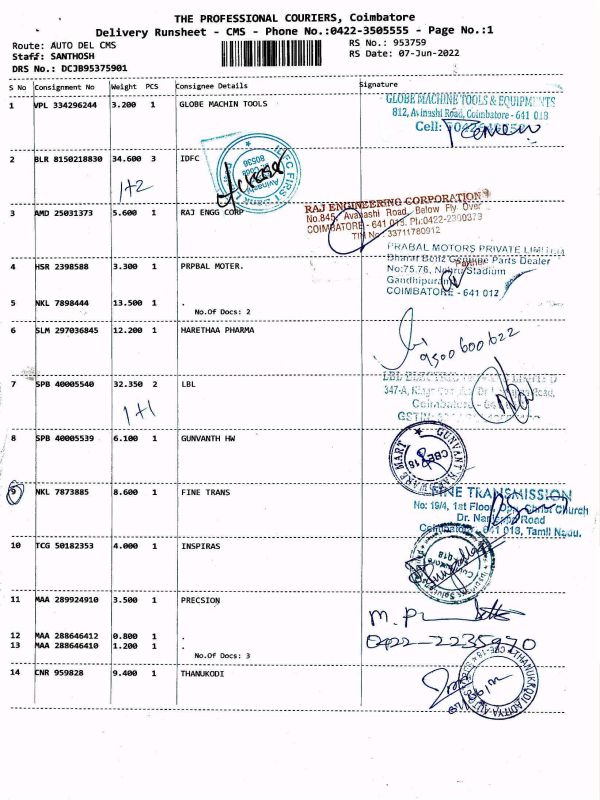 THE PROFESSIONAL COURIERS, Coimbatore
Delivery Runsheet - CMS - Phone No.:0422-3505555 - Page No.:1
Route: AUTO DEL CMS
RS No.: 953759
Staff: SANTHOSH
RS Date: 07-Jun-2022
DRS No.: DCJB95375901
S No Consignment No Weight PCS Consignee Details Signature
1 VPL 334296244 3.200 1 GLOBE MACHIN TOOLS
GLOBE MACHINE TOOLS & EQUIPMENTS
812, Avinashi Road, Coimbatore - 641 018
Cell:
2 BLR 8150218830 34.600 3 IDFC
1+2
IDFC FIRST
3 AMD 25031373 5.600 1 RAJ ENGG CORP
RAJ ENGINEERING CORPORATION
No.845, Avanashi Road, Below Fly Over
COIMBATORE - 641 018. Ph:0422-2300373
TIN No: 33711780912
PRABAL MOTORS PRIVATE LIMITED
Bharat Benz Genuine Parts Dealer
4 HSR 2398588 3.300 1 PRPBAL MOTER.
No:75,76, Nehru Stadium
Gandhipuram
COIMBATORE - 641 012
5 NKL 7898444 13.500 1 .
No.Of Docs: 2
6 SLM 297036845 12.200 1 HARETHAA PHARMA
9500600622
7 SPB 40005540 32.350 2 LBL
1+1
LBL
Coimbatore - 641
GSTIN:
8 SPB 40005539 6.100 1 GUNVANTH HW
GUNVANT HARDWARE MART
CBE-18
9 NKL 7873885 8.600 1 FINE TRANS
FINE TRANSMISSION
No: 19/4, 1st Floor, Opp. Christ Church
Road
Coimbatore - 641 018, Tamil Nadu.
10 TCG 50182353 4.000 1 INSPIRAS
11 MAA 289924910 3.500 1 PRECSION
12 MAA 288646412 0.800 1 .
0422-2235970
13 MAA 288646410 1.200 1 .
No.Of Docs: 3
14 CNR 959828 9.400 1 THANUKODI